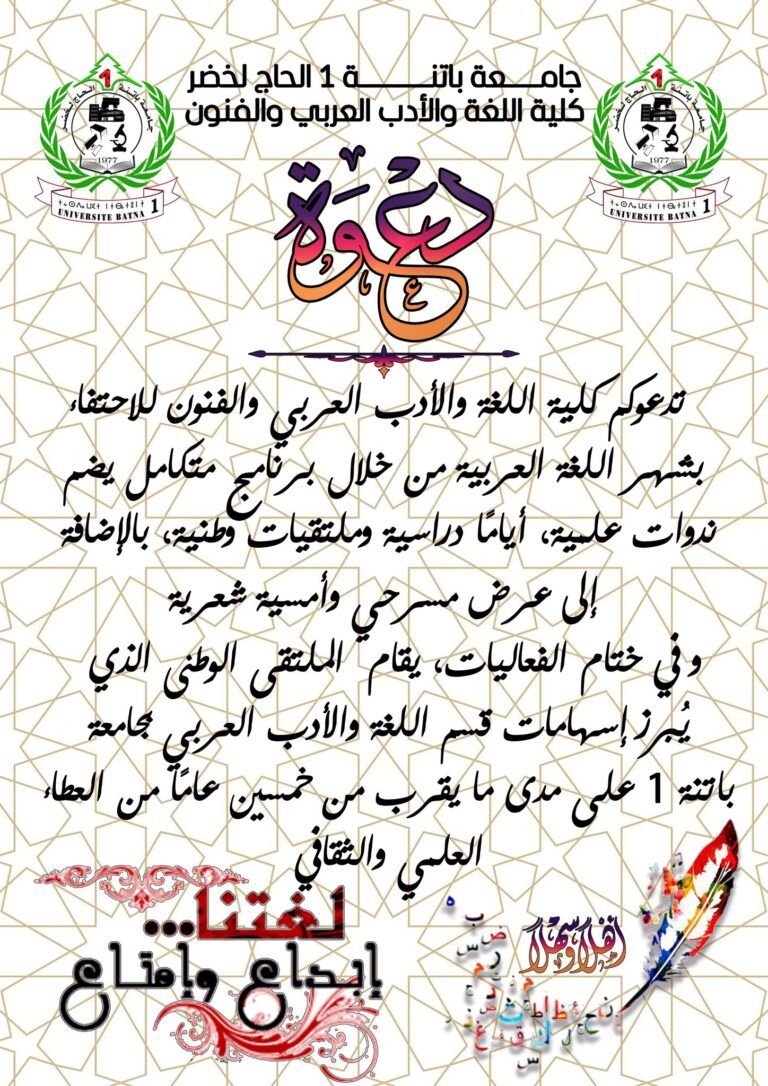 جامعة باتنة 1 الحاج لخضر
كلية اللغة والأدب العربي والفنون
جامعة باتنة 1 الحاج لخضر
1977
ⵜⴰⵙⴷⴰⵡⵉⵜ ⵏ ⵜⴱⴰⵜⴻⵏⵜ 1
UNIVERSITE BATNA 1
جامعة باتنة 1 الحاج لخضر
1977
UNIVERSITE BATNA 1
دعوة
تدعوكم كلية اللغة والأدب العربي والفنون للاحتفاء
بشهر اللغة العربية من خلال برنامج متكامل يضم
ندوات علمية، أيامًا دراسية وملتقيات وطنية، بالإضافة
إلى عرض مسرحي وأمسية شعرية
وفي ختام الفعاليات، يقام الملتقى الوطني الذي
يُبرز إسهامات قسم اللغة والأدب العربي بجامعة
باتنة 1 على مدى ما يقرب من خمسين عامًا من العطاء
العلمي والثقافي
لغتنا...
إبداع وإمتاع
أهلا وسهلا